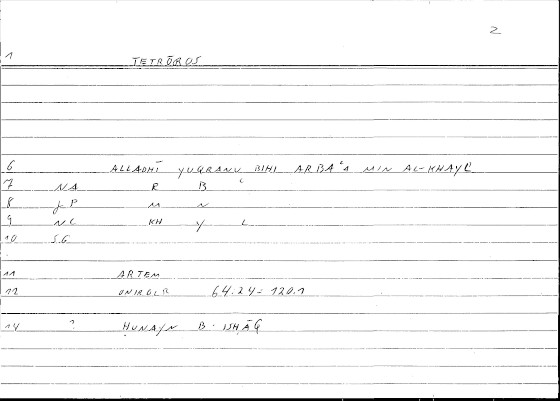 2
1 TETRŌROS
6 ALLADHĪ YUQRANU BIHI ARBAʿA MIN AL-KHAYL
7 NA R B ʿ
8 JP M N
9 NC KH Y L
10 SG
11 ARTEM
12 ONIROCR 64.24 = 120.1
14 ? ḤUNAYN B. ISḤĀQ